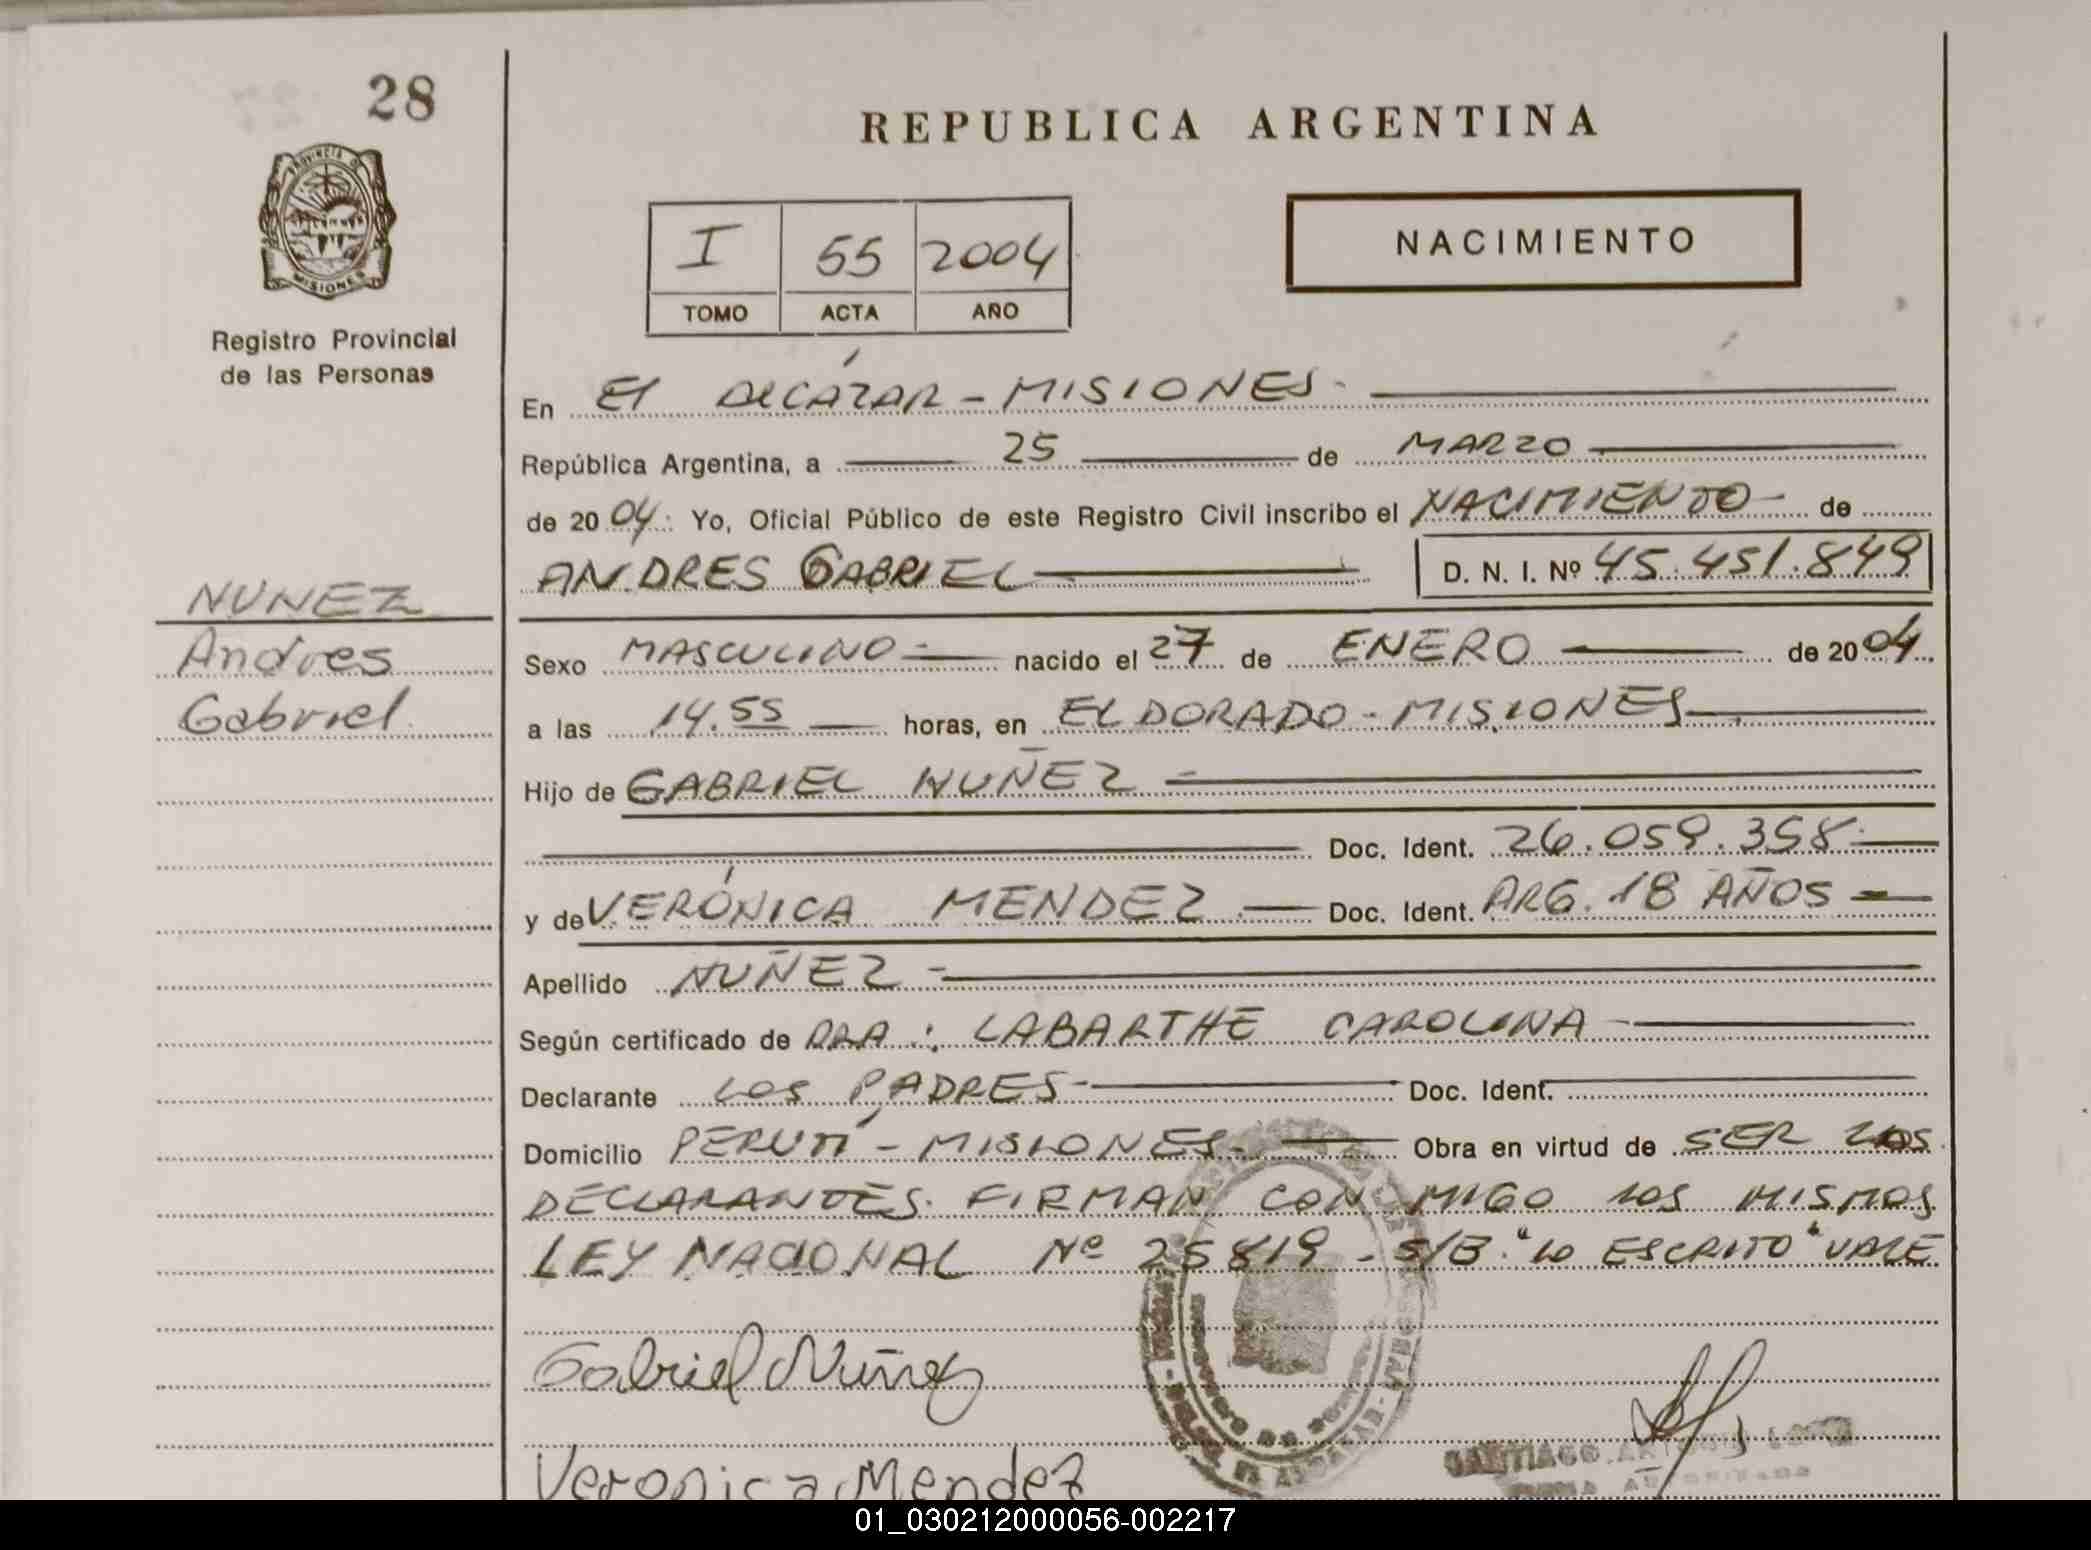 28
PROVINCIA DE
MISIONES
Registro Provincial
de las Personas
NUNEZ
Andres
Gabriel
REPUBLICA ARGENTINA
I 55 2004
TOMO ACTA AÑO
NACIMIENTO
En El ALCÁZAR - MISIONES-
República Argentina, a 25 de MARZO
de 2004: Yo, Oficial Público de este Registro Civil inscribo el NACIMIENTO- de
ANDRES GABRIEL D. N. I. Nº 45.451.849
Sexo MASCULINO- nacido el 27 de ENERO de 2004.
a las 14.55 horas, en ELDORADO - MISIONES
Hijo de GABRIEL NUÑEZ -
Doc. Ident. 26.059.358-
y de VERÓNICA MENDEZ Doc. Ident. ARG. 18 AÑOS
Apellido NUÑEZ -
Según certificado de DRA: LABARTHE CAROLINA
Declarante LOS PADRES- Doc. Ident.
Domicilio PERUTÍ - MISIONES. Obra en virtud de SER LOS
DECLARANTES. FIRMAN CON MIGO LOS MISMOS
LEY NACIONAL Nº 25819 - S/B. "LO ESCRITO" VALE
Gabriel Nuñez
Veronica Mendez
SANTIAGO
01_030212000056-002217